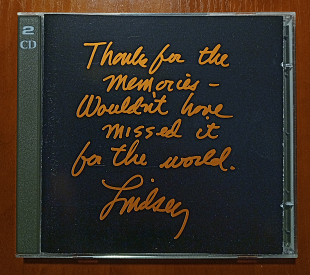 2
CD
Thanks for the
memories –
Wouldn't have
missed it
for the world.
Lindsey